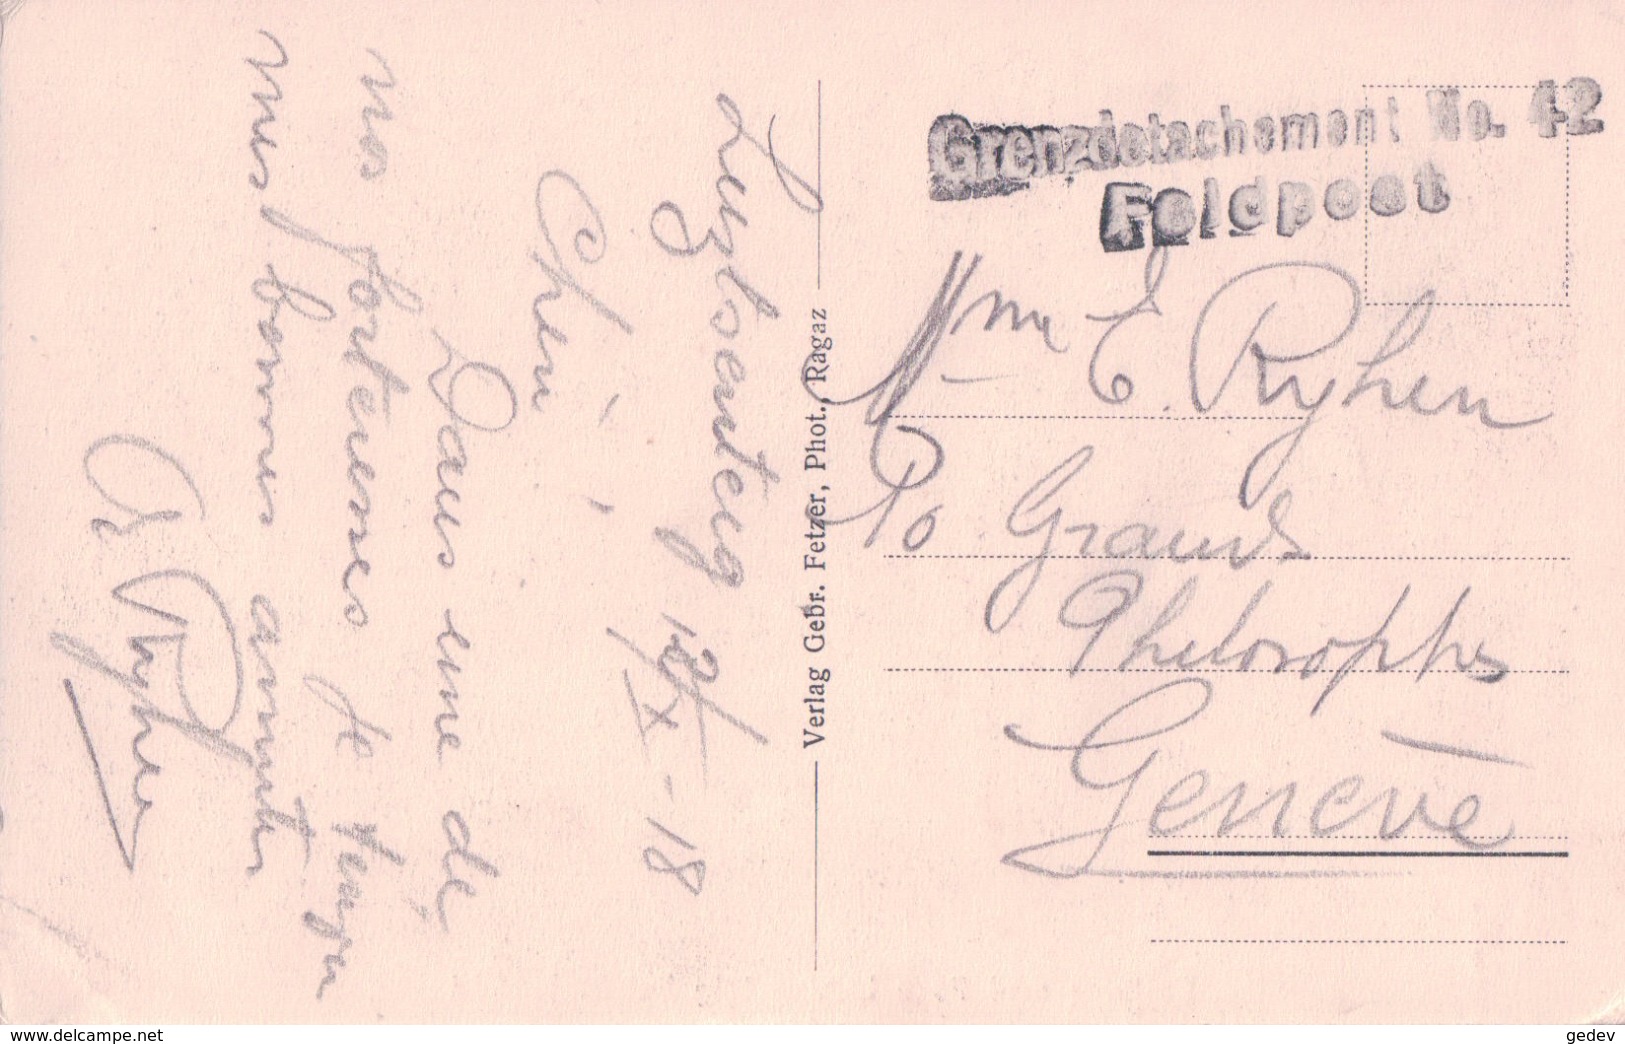 Luziensteig
12/X - 18
Chéri,
Dans une de
nos forteresses je
mes bonnes amitiés
Ryhen
Verlag Gebr. Fetzer, Phot., Ragaz
Grenzdetachement No. 42
Feldpost
Mme E. Ryhen
10 Grands
Philosophes
Genève
www.delcampe.net
gedev